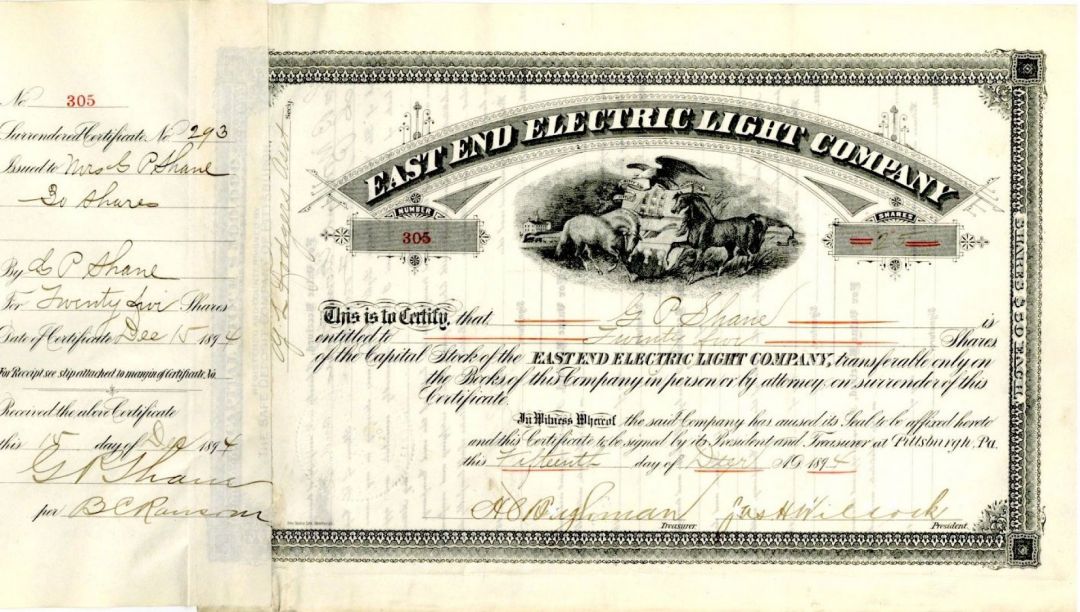 No. 305
Surrendered Certificate No 293
Issued to Mrs G P Shane
30 Shares
By G P Shane
For Twenty five Shares
Date of Certificate Dec 15 1894
For Receipt see slip attached to margin of Certificate, No.
Received the above Certificate
this 15 day of Dec 1894
G P Shane
per B C Ransom
Secy.
EAST END ELECTRIC LIGHT COMPANY
NUMBER
305
SHARES
25
This is to Certify, that G P Shane is
entitled to Twenty five Shares
of the Capital Stock of the EAST END ELECTRIC LIGHT COMPANY, transferable only on
the Books of this Company in person or by attorney, on surrender of this
Certificate.
In Witness Whereof the said Company has caused its Seal to be affixed hereto
and this Certificate to be signed by its President and Treasurer at Pittsburgh, Pa.
this Fifteenth day of Decr AD 1894
Treasurer
Jas H Willcock
President